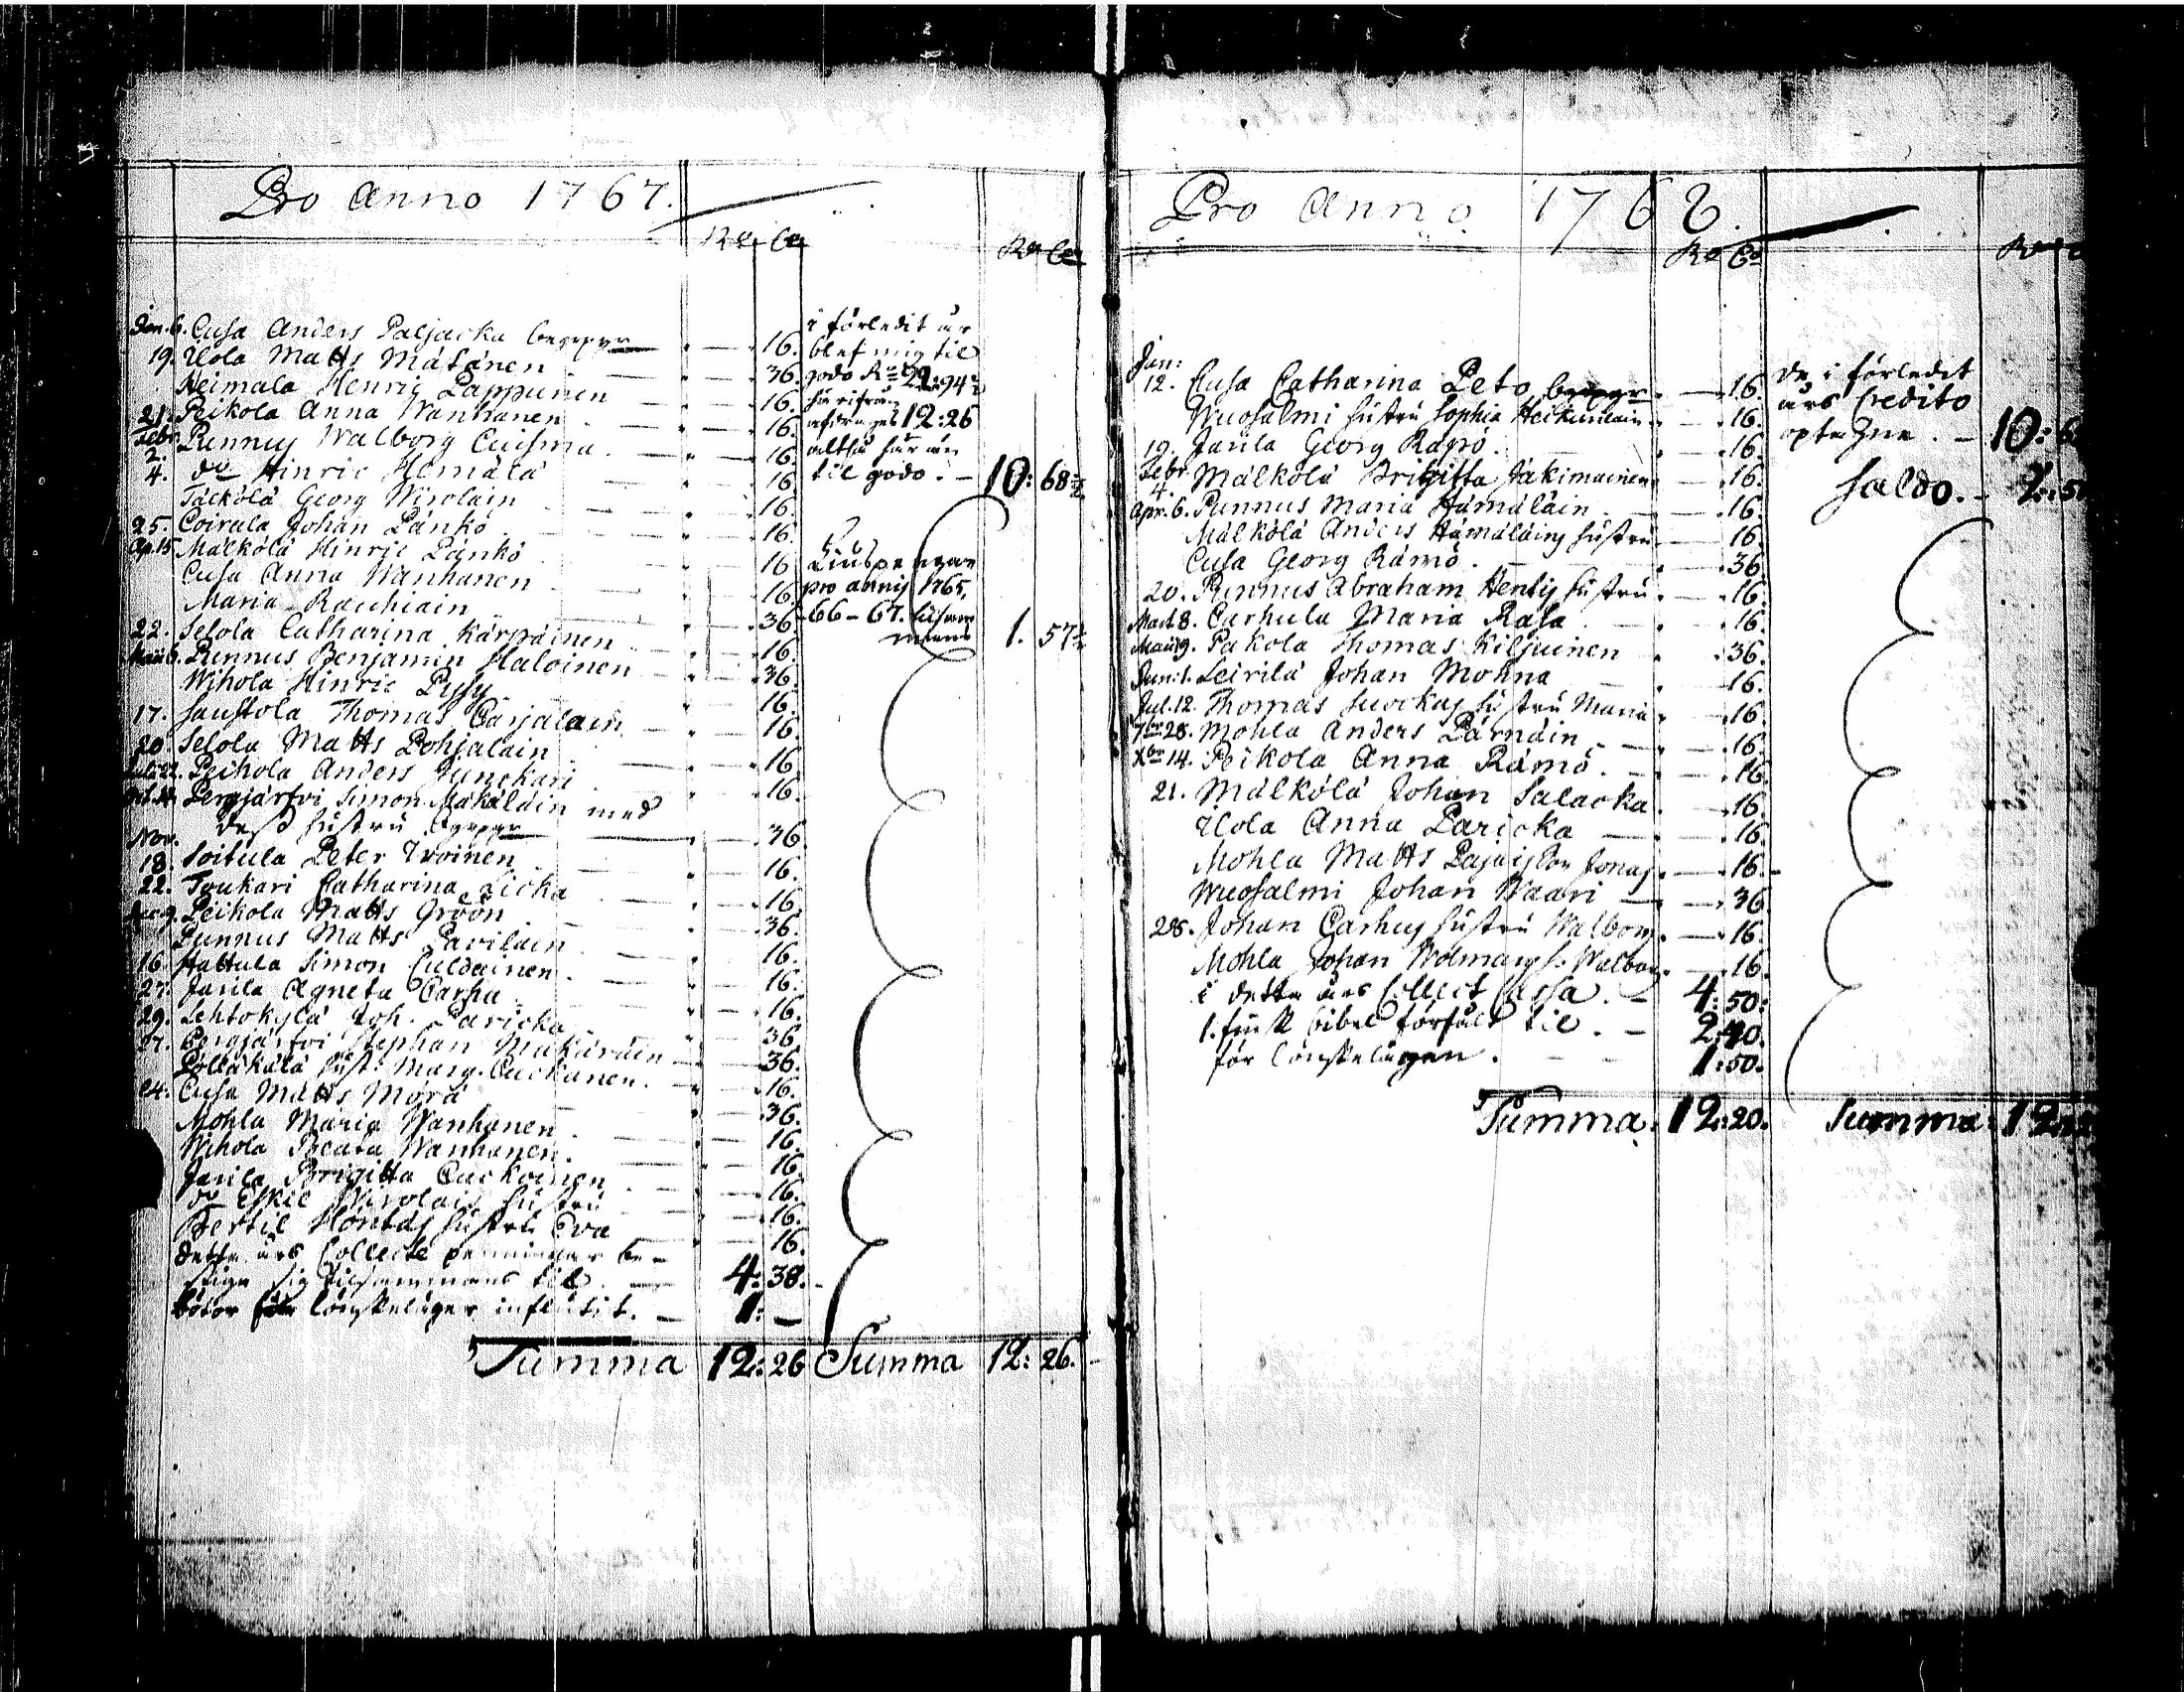 Pro Anno 1767.
Ro Co
Ro Co
Jan. 6. Cusa Anders Paljacka begrepr — 16.
19. Ilola Matts Mátánen — 36.
Heimala Henric Pappunen — 16.
21. Peikola Anna Wanhanen — 16.
Febr. 2. Punnus Walborg Cuisma — 16.
4. do Hinric Hemálá — 16.
Táckólá Georg Nirolain — 16.
25. Coirala Johan Pánkó — 16.
Ap. 15 Málkólá Hinric Pánkó — 16
Cusa Anna Wanhanen — 16.
Maria Rauhiain — 36
22. Selola Catharina Kárpáinen — 16.
Maii 6. Punnus Benjamin Haloinen — 36.
Wihola Hinric Pysy — 16.
17. Saustola Thomas Carjalain — 16.
20. Selola Matts Pohjalain — 16
Julii 22. Peikola Anders Junckari — 16.
Pergjárfvi Simon Mákáláin med
dess hustru — 36.
Nov.
18. Soitula Peter Iwoinen — 16.
22. Toukari Catharina Licka — 16.
Peikola Matts Gróón — 36.
Punnus Matts Pavilain — 16.
16. Hattula Simon Culdainen — 16.
27. Jaula Agneta Carha — 16.
29. Lehtokylá Joh. Paricka — 36.
Pergjárfvi Stephan Mukaráin — 36.
Póllákálá hust: Marg. Cuckanen — 16.
24. Cusa Matts Mórá — 36.
Mohla Maria Wanhanen — 16.
Wihola Beata Wanhanen — 16.
Jaula Brigitta Cuckoinen — 16.
do Eskil Nirolais hustru — 16.
Bertil Hontás hustru Eva — 16.
Detta års Collecte penningar be-
stiga sig tilsammans til — 4: 38.
bótor för lónskeläger influtit. — 1: —
Summa 12: 26
i förledit år
blef mig til
godo Ro 22:94½
härifrån
afdrages 12:26
altså här än
til godo. — 10: 68½
Liuspengar
pro annis 1765,
-66-67. tilsam
mans 1. 57½
Summa 12: 26.
Pro Anno 1768.
Ro Co
Jan:
12. Cusa Catharina Peto begrepr — 16.
Wuosalmi hustru Sophia Heickinlain — 16.
19. Jaula Georg Rámó — 16.
Febr. 4. Málkólá Brigitta Jakimainen — 16.
Apr. 6. Punnus Maria Hámáláin — 16.
Málkólá Anders Hámáláins hustru — 16.
Cusa Georg Rámó — 36.
20. Punnus Abraham Hentis hustru — 16.
Mart 8. Carhula Maria Rasa — 16.
Maii 19. Pakola Thomas Kiljuinen — 36.
Jun. 1. Leirilá Johan Mohna — 16.
Jul. 12. Thomas Suockas hustru Maria — 16.
7br 28. Mohla Anders Párnáin — 16.
Xbr 14. Peikola Anna Rámó. — 16.
21. Málkólá Johan Salacka. — 16.
Ilola Anna Paricka — 16.
Mohla Matts Pajais son Jonas. — 16.
Wuosalmi Johan Waari — 36.
28. Johan Carhus hustru Walborg. — 16.
Mohla Johan Wolmars h: Walborg — 16.
i detta års Collect Cassa. — 4: 50.
1. finsk bibel försåld til. — 2: 40.
för lönskelägen. — 1: 50.
Summa. 12: 20.
De i förledit
års Credito
uptagne. — 10:
Saldo. —
Summa: 12: